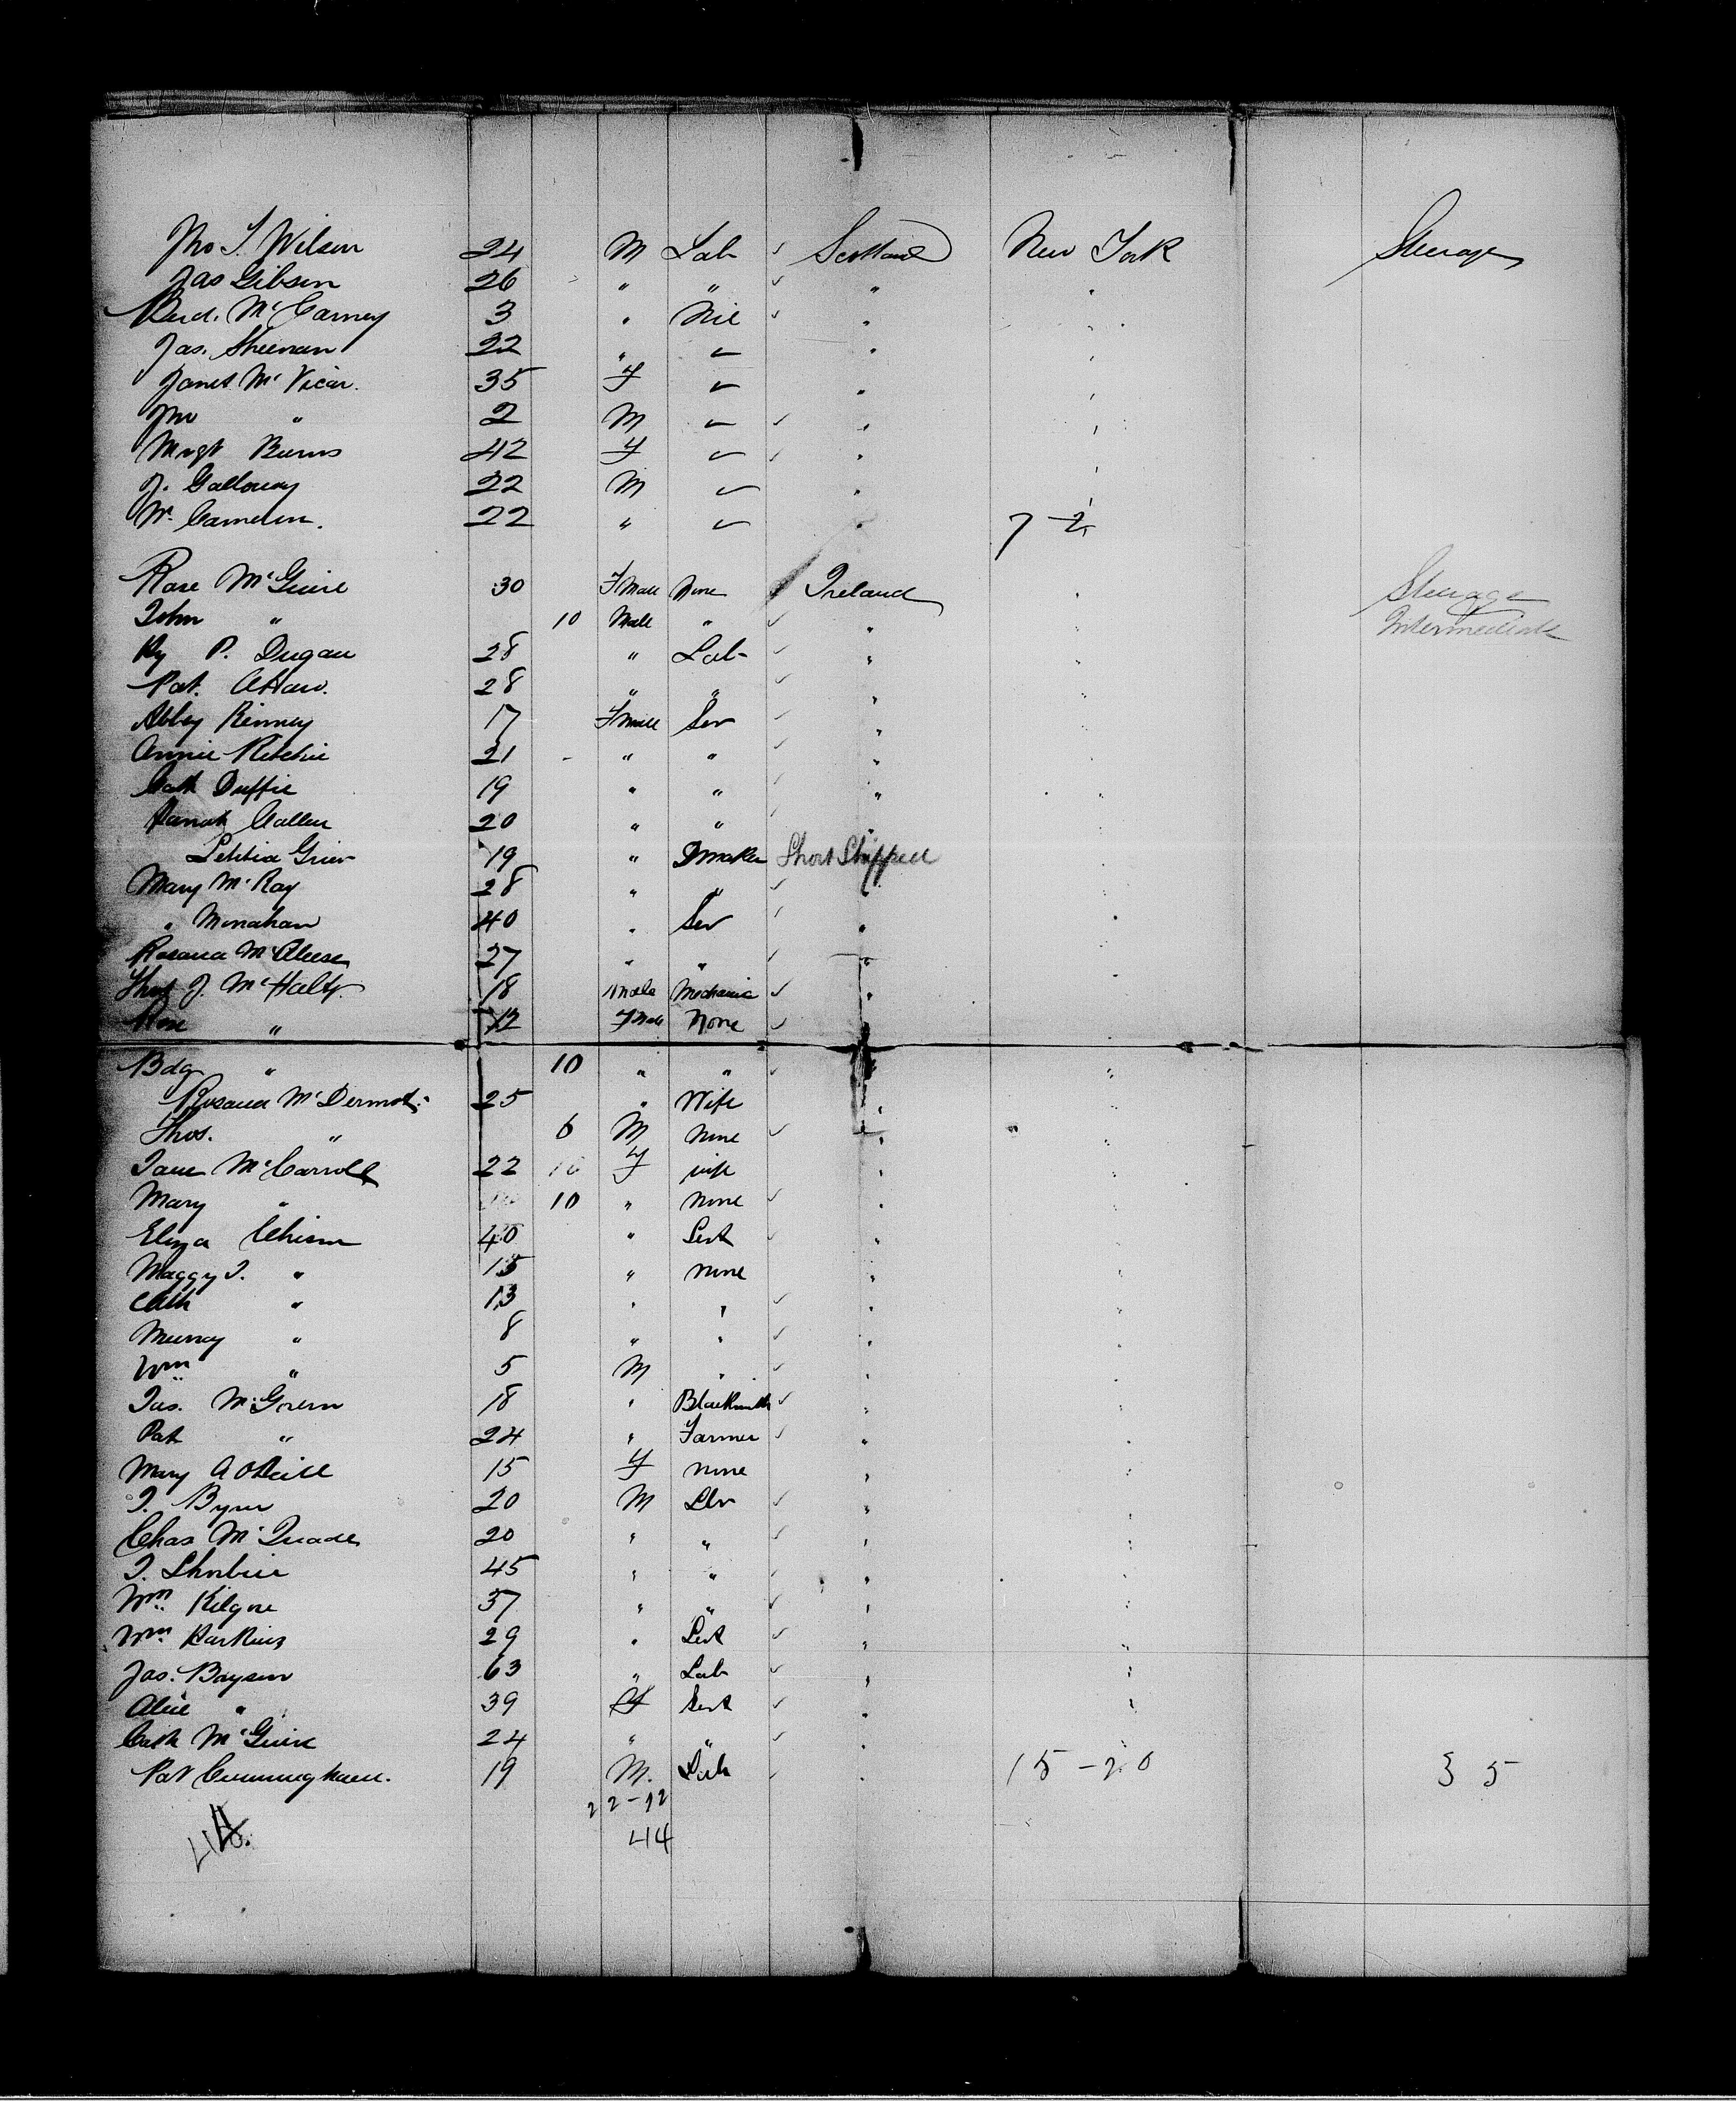 Jno T. Wilson 24 M Lab ✓ Scotland New York Steerage
Jas Gibson 26 " " ✓ " "
3 " Nil ✓ " "
Jas. Sheenan 22 " " "
Janet McVicar. 35 F " "
Jno " 2 M ✓ " "
Mrgt Burns 42 F ✓ " "
J. Galloway 22 M " "
W. Cameron. 22 " " 7-2
Rose McGuire 30 FMale None Ireland " Steerage
John " 10 Male " ✓ " " Intermediate
P. Dugan 28 " Lab ✓ " "
Pat. 28 " " ✓ " "
Abby Kenney 17 Fmale Ser ✓ " "
Annie Ritchie 21 " " ✓ " "
Cath Duffie 19 " " ✓ " "
Hanah Callen 20 " " ✓ " "
Letitia Grier 19 " Dmaker Short Shipped
Mary McKay 28 " " ✓ " "
" Monahan 40 " Ser ✓ " "
Rosana McAleese 27 " " ✓ " "
Thos J. McHalty 18 Male Mechanic ✓ " "
Rose " 12 FMale None ✓ "
Bdg " 10 " " ✓ " "
Rosana McDermot 25 " Wife " "
Thos. " 6 M None ✓ " "
Jane McCarroll 22 F wife " "
Mary " 10 " None ✓ " "
Eliza Chism 40 " Sert ✓ " "
Maggy J. " 15 " None " "
Cath " 13 " " ✓ " "
Murray " 8 " " ✓ " "
Wm " 5 M " ✓ " "
Jas. McGovern 18 " Blacksmith ✓ " "
Pat " 24 " Farmer ✓ " "
Mary A O'Neill 15 F None " "
J. Byrne 20 M ✓ " "
Chas McQuade 20 " " ✓ " "
J. 45 " " ✓ " "
Wm. Kilgore 37 " " ✓ " "
Wm. Harkins 29 " Sert ✓ " "
Jas. Boysen 63 " Lab ✓ " "
Alice " 39 F Sert ✓ " "
Cath McGuire 24 " " ✓ " "
Pat Cunningham. 19 M. Lab ✓ " 15-20 35
22-12
44